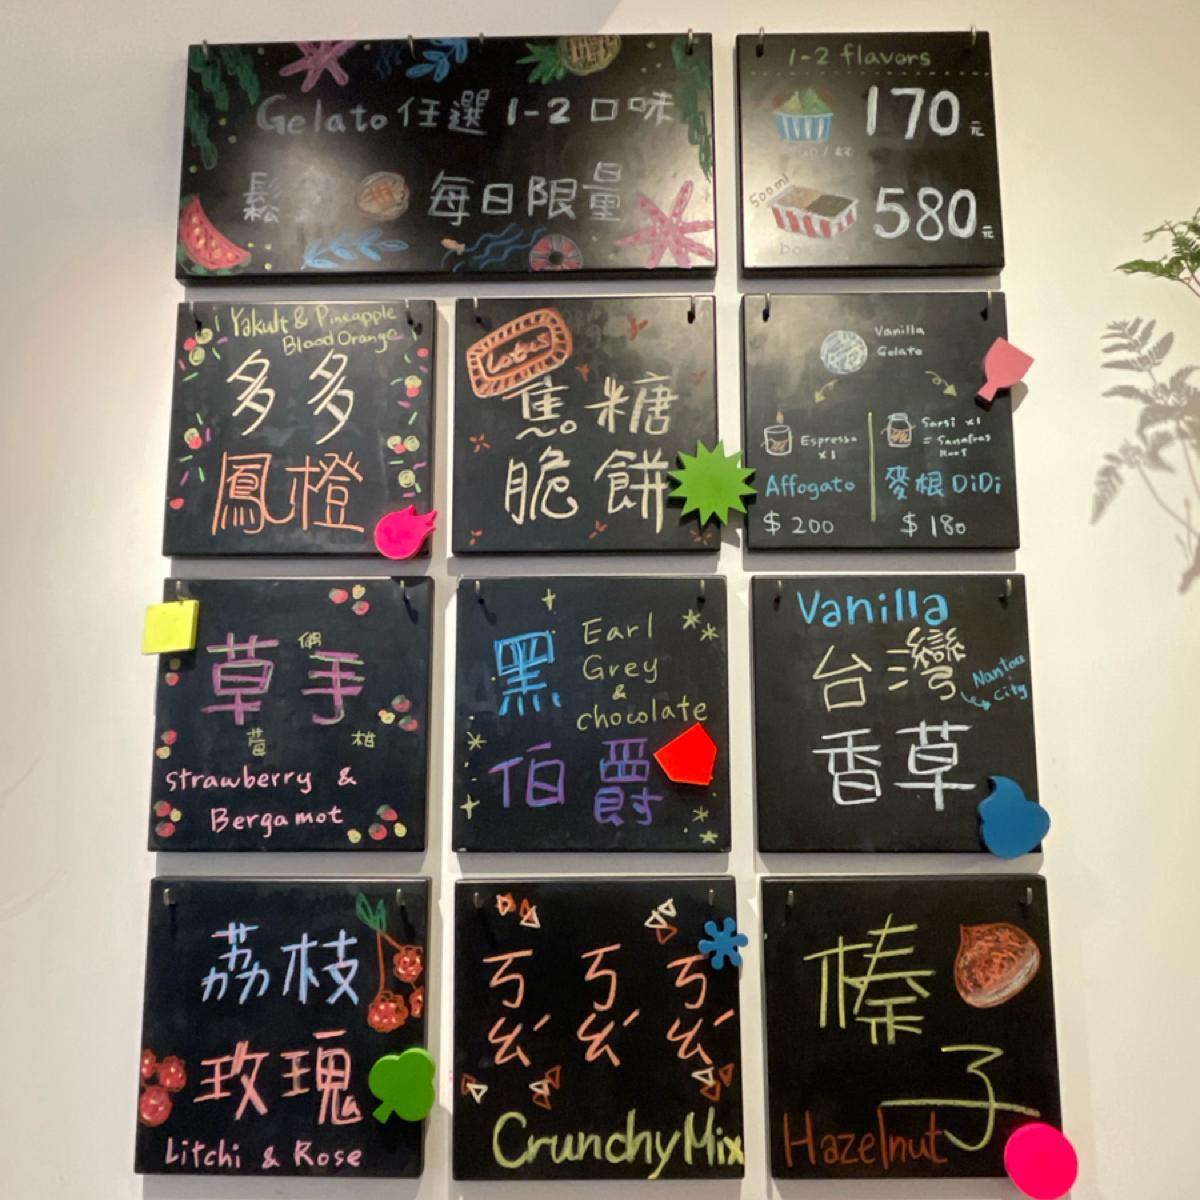 Gelato 任選 1-2 口味
鬆 每日限量
1-2 flavors
170 元
cup / 杯
500ml
580 元
box
Yakult & Pineapple
Blood Orange
多多
鳳橙
Lotus
焦糖
脆餅
Vanilla
Gelato
Espresso
x1
Affogato
$ 200
Sarsi x1
= Sanafras
Root
麥根 DiDi
$ 180
草手
莓 柑
strawberry &
Bergamot
黑
Earl
Grey
&
chocolate
伯爵
Vanilla
台灣
Nantou
City
香草
荔枝
玫瑰
Litchi & Rose
ㄎㄠˊ ㄎㄠˊ ㄎㄠˊ
CrunchyMix
榛
子
Hazelnut